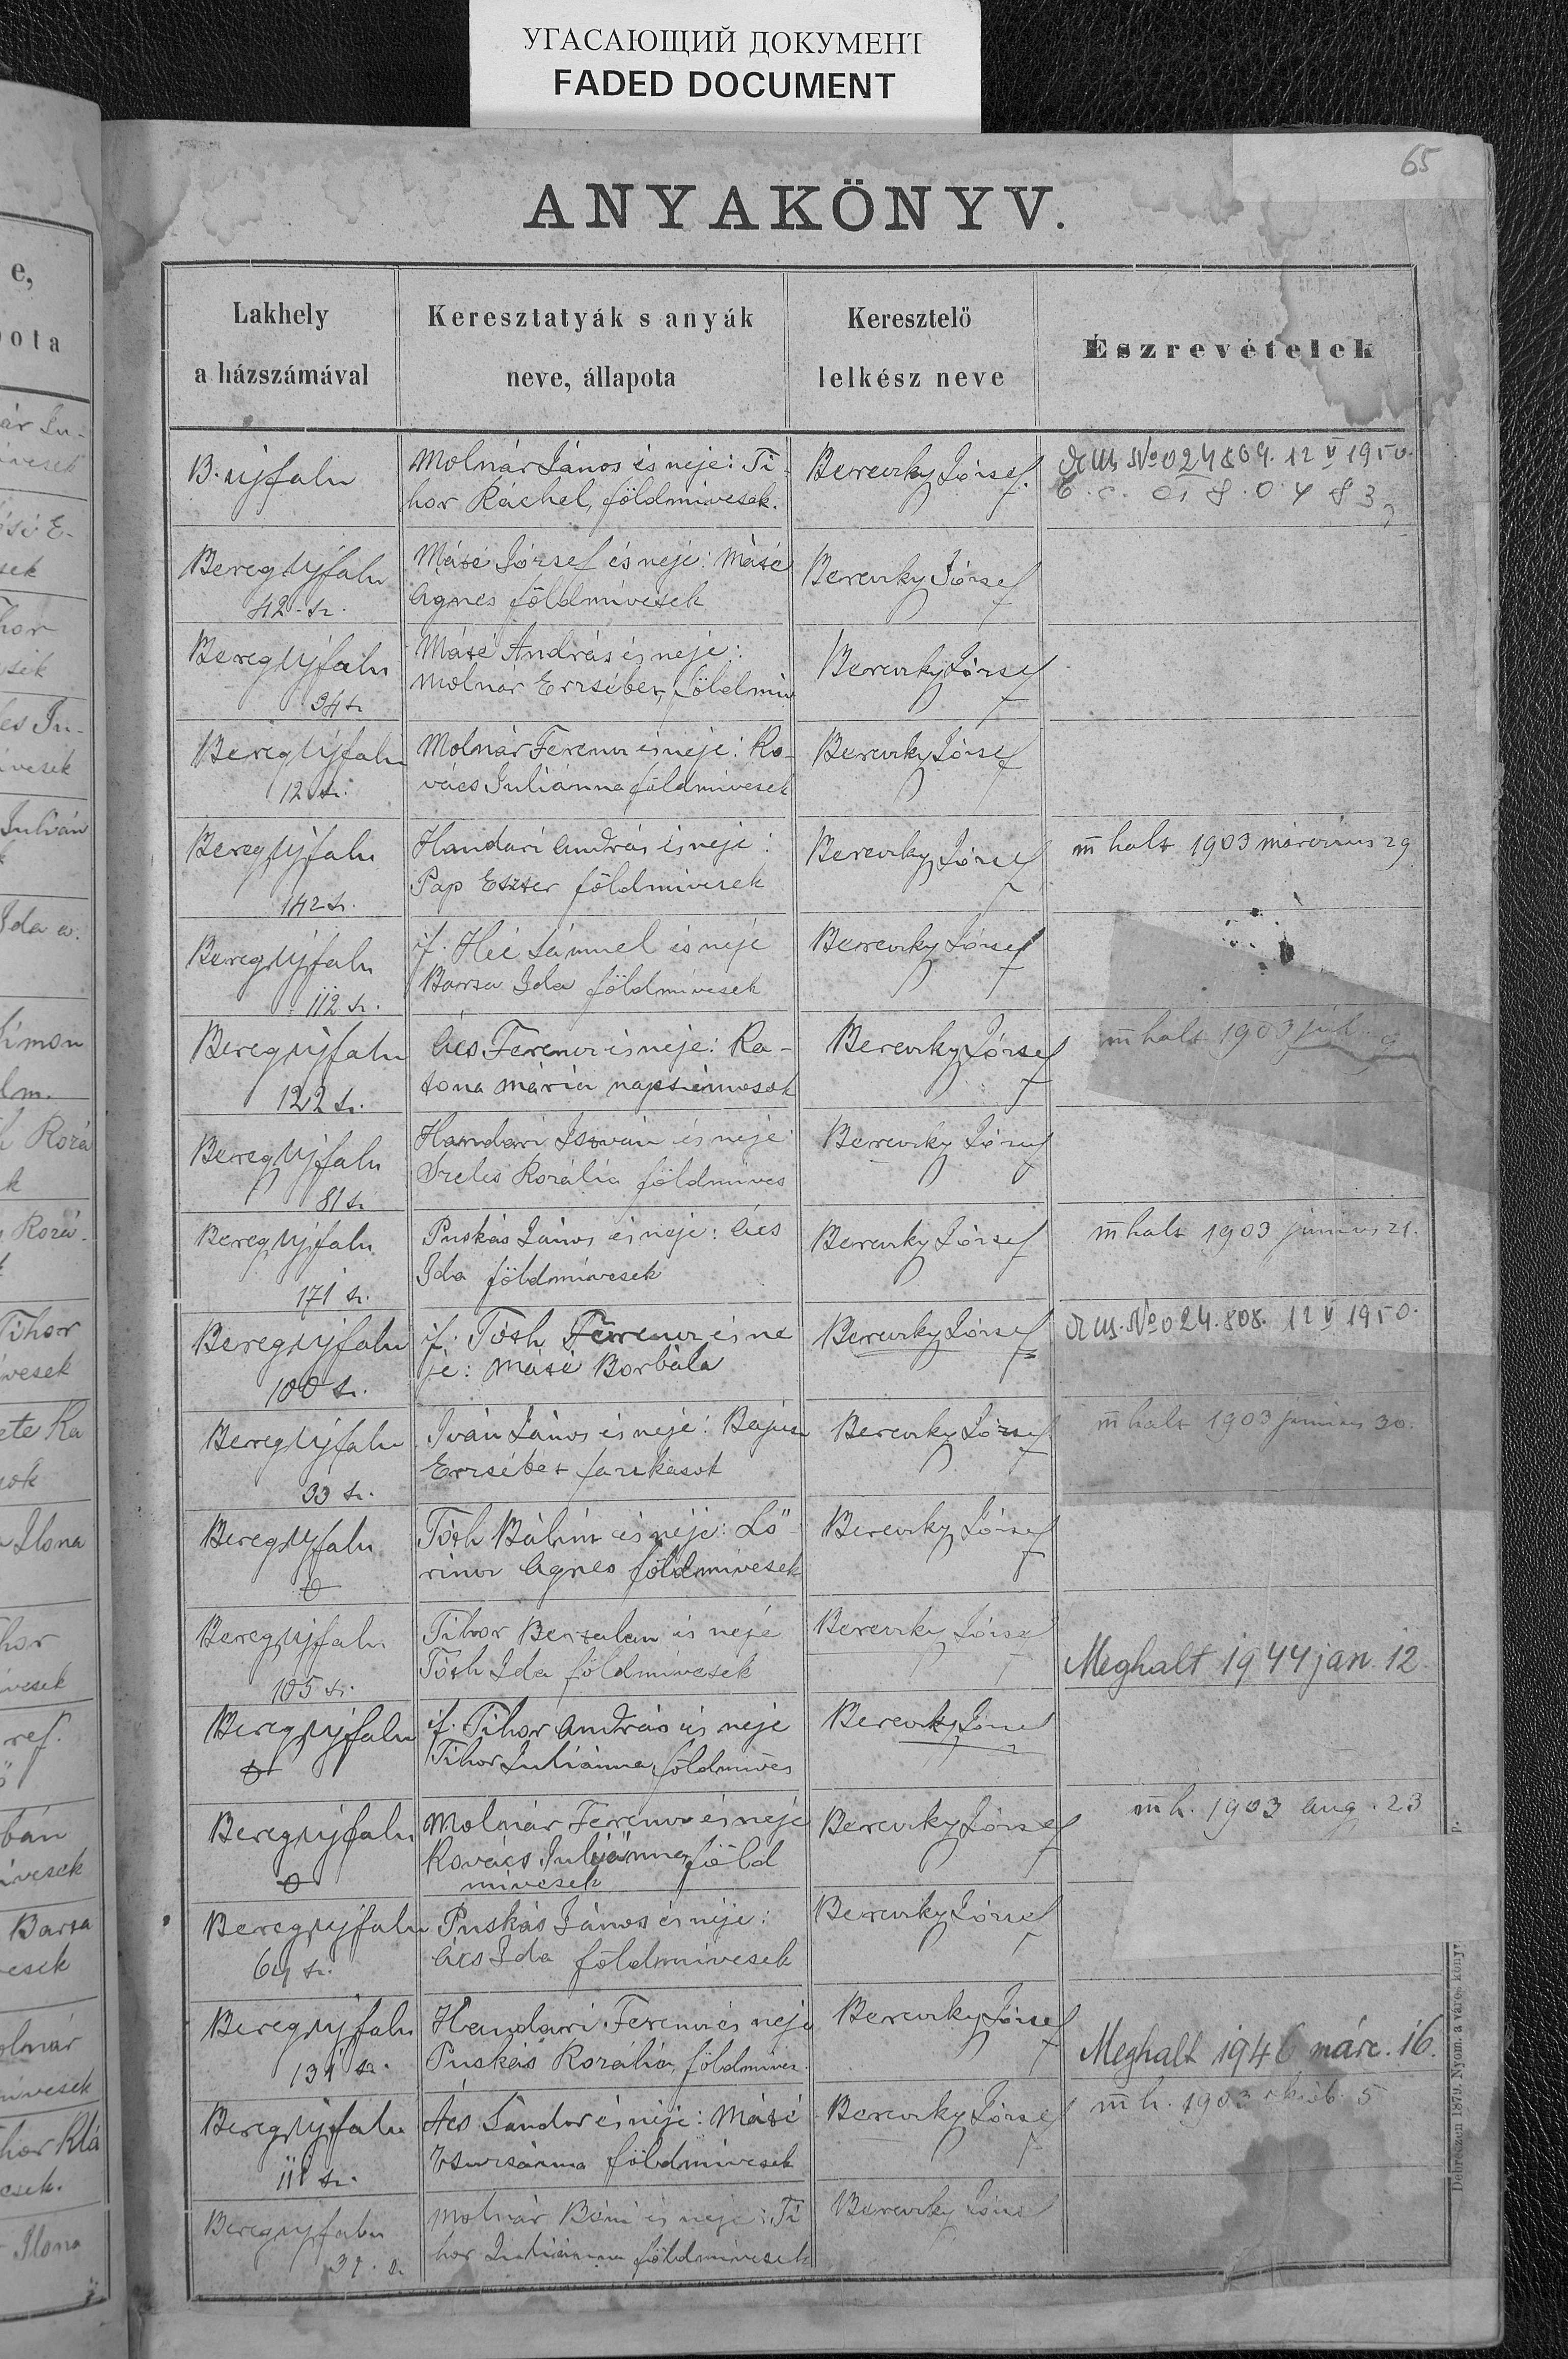 УГАСАЮЩИЙ ДОКУМЕНТ
FADED DOCUMENT
65
ANYAKÖNYV.
e,
pota
Lakhely
a házszámával
Keresztatyák s anyák
neve, állapota
Keresztelő
lelkész neve
Észrevételek
B. ujfalu
Molnár János és neje: Ti-
hor Ráchel, földmivesek.
Bereczky József.
№ 024809. 12 V 1950.
BeregUjfalu
42. sz.
Máté József és neje: Máté
Ágnes földmivesek
Bereczky József
BeregUjfalu
34 sz
Máté András és neje:
Molnár Erzsébet, földmiv
Bereczky József
BeregUjfalu
12 sz.
Molnár Ferencz és neje: Ko-
vács Juliánna földmivesek
Bereczky József
BeregUjfalu
142 sz.
Handari András és neje:
Pap Eszter földmivesek
Bereczky József
m̅halt 1903 márczius 29
BeregUjfalu
112 sz.
if. Héi Sámuel és neje
Barta Ida földmivesek
Bereczky József
BeregUjfalu
122 sz.
Ács Ferencz és neje: Ka-
tona Mária napszámosok
Bereczky József
m̅halt 1903 júl. 9
BeregUjfalu
81 sz
Handari István és neje
Szeles Rozália földmives
Bereczky József
BeregUjfalu
171 sz.
Puskás János és neje: Ács
Ida földmivesek
Bereczky József
m̅halt 1903 junius 21.
BeregUjfalu
100 sz.
if. Tóth Ferencz és ne
je: Máté Borbála
Bereczky József
№ 024.808. 12 V 1950.
BeregUjfalu
33 sz.
Iván János és neje: Bajusz
Erzsébet fazekasok
Bereczky József
m̅halt 1903 junius 30.
BeregUjfalu
Tóth Bálint és neje: Lő-
rincz Ágnes földmivesek
Bereczky József
BeregUjfalu
105 sz.
Tihor Bertalan és neje
Tóth Ida földmivesek
Bereczky József
Meghalt 1944 jan. 12.
BeregUjfalu
if. Tihor András és neje
Tihor Juliánna, földmives
Bereczky József
BeregUjfalu
Molnár Ferencz és neje
Kovács Juliánna, föld
mivesek
Bereczky József
m̅h. 1903 aug. 23
BeregUjfalu
64 sz.
Puskás János és neje:
Ács Ida földmivesek
Bereczky József
BeregUjfalu
131 sz.
Handari Ferencz és neje
Puskás Rozália, földmives.
Bereczky József
Meghalt 1946 márc. 16.
BeregUjfalu
111 sz.
Ács Sándor és neje: Máté
Zsuzsánna földmivesek
Bereczky József
m̅h. 1903 októb. 5
BeregUjfalu
Molnár Béni és neje: Ti
hor Juliánna földmivesek
Bereczky József
Debreczen 1879. Nyom. a város könyv